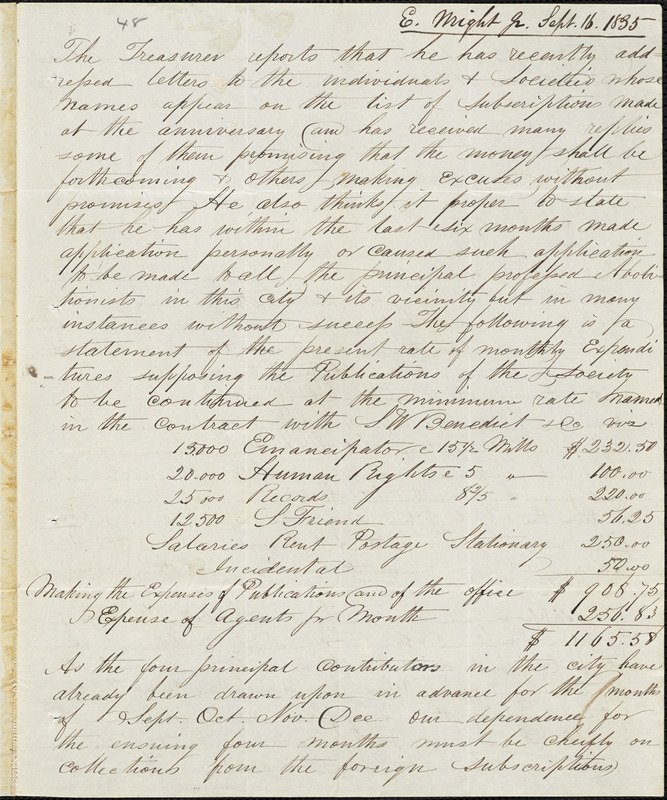 48
E. Wright Jr. Sept. 16. 1835
The Treasurer reports that he has recently add
ressed letters to the individuals & Societies whose
names appear on the list of Subscriptions made
at the anniversary (and has received many replies
some of them promising that the money shall be
forthcoming & others making excuses without
promises He also thinks it proper to state
that he has within the last six months made
application personally or caused such application
to be made to all the principal professed Aboli
tionists in this city & its vicinity but in many
instances without success The following is a
statement of the present rate of monthly Expendi
tures supposing the Publications of the Society
to be continued at the minimum rate named
in the Contract with S W Benedict &c viz
15.000 Emancipator c 15 1/2 Mills $ 232.50
20.000 Human Rights c 5 " 100.00
25 000 Records 8 4/5 " 220.00
12.500 S Friend 56.25
Salaries Rent Postage Stationary 250.00
Incidental 50.00
Making the Expenses of Publications and of the office $ 908.75
Expense of Agents pr Month 256.83
$ 1165.58
As the four principal Contributors in the city have
already been drawn upon in advance for the month
of Sept. Oct. Nov. (Dec our dependence for
the ensuing four months must be cheifly on
collections from the foreign subscriptions